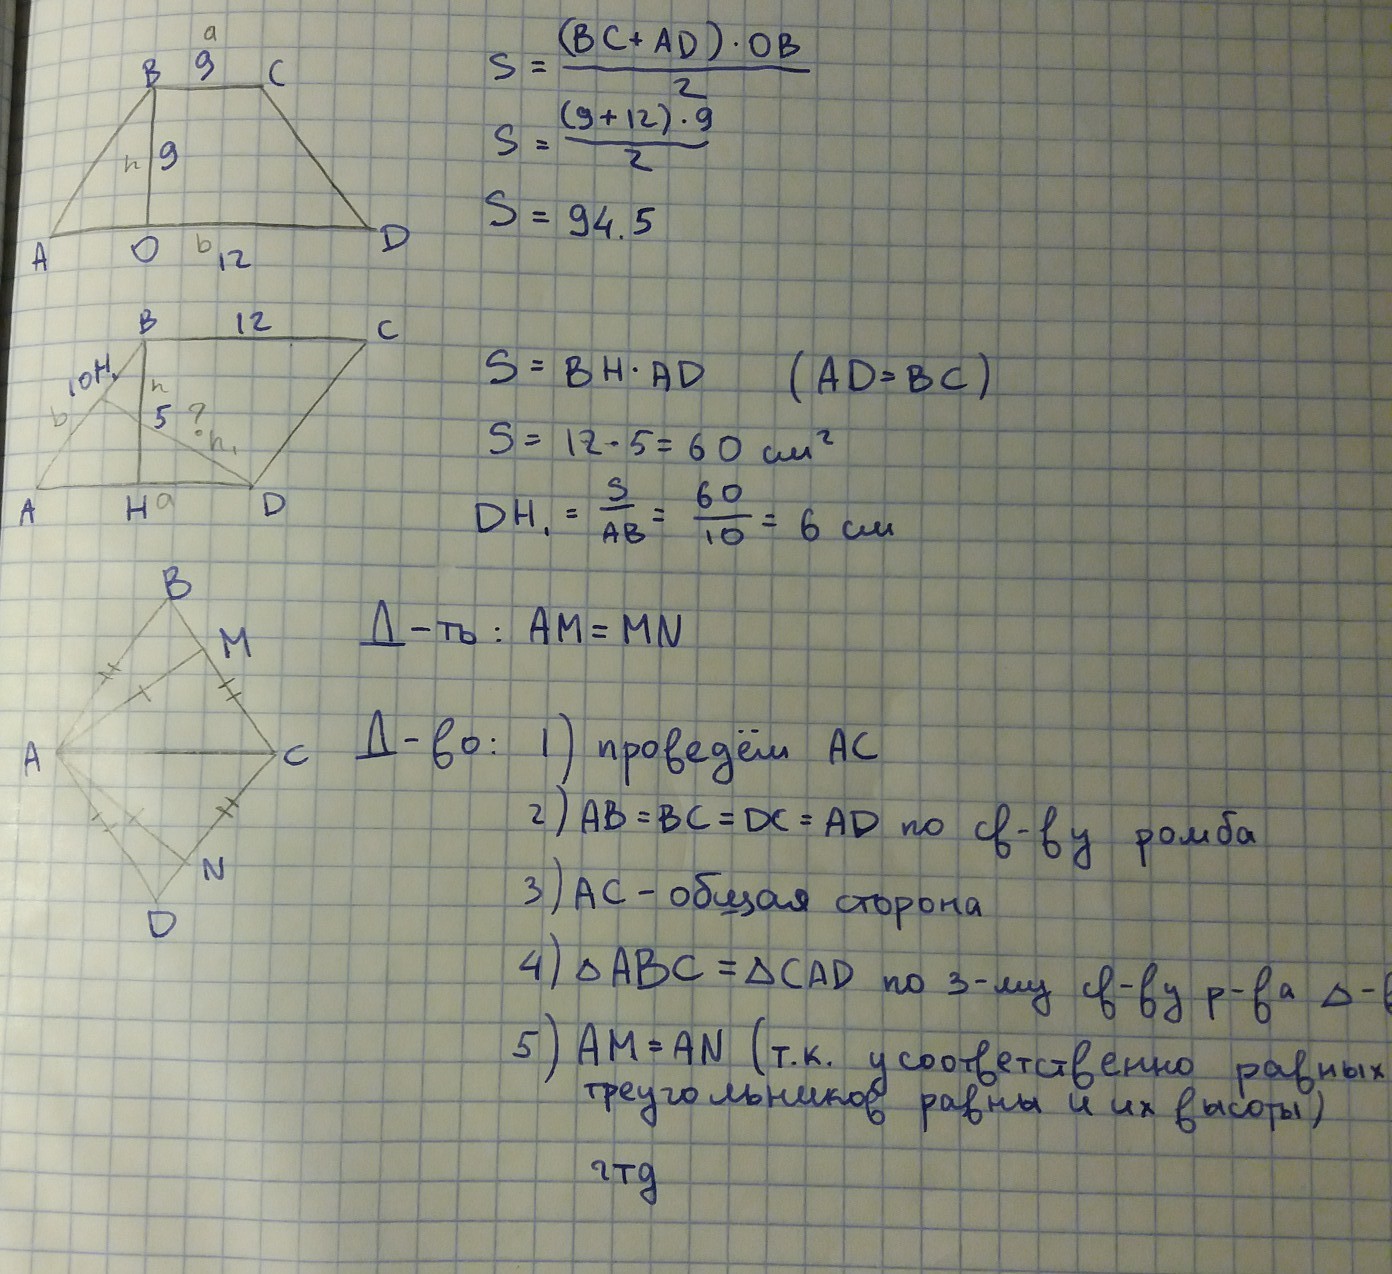 a
B 9 C
h 9
A O b 12 D
S = (BC + AD) · OB / 2
S = (9 + 12) · 9 / 2
S = 94.5
B 12 C
10 H₁ h
b 5 ? h₁
A H a D
S = BH · AD (AD = BC)
S = 12 · 5 = 60 см²
DH₁ = S / AB = 60 / 10 = 6 см
B
M
A C
N
D
Д-ть: AM = MN
Д-во: 1) проведём AC
2) AB = BC = DC = AD по св-ву ромба
3) AC - общая сторона
4) △ABC = △CAD по 3-му св-ву р-ва △-в
5) AM = AN (т.к. у соответственно равных
треугольников равны и их высоты)
чтд